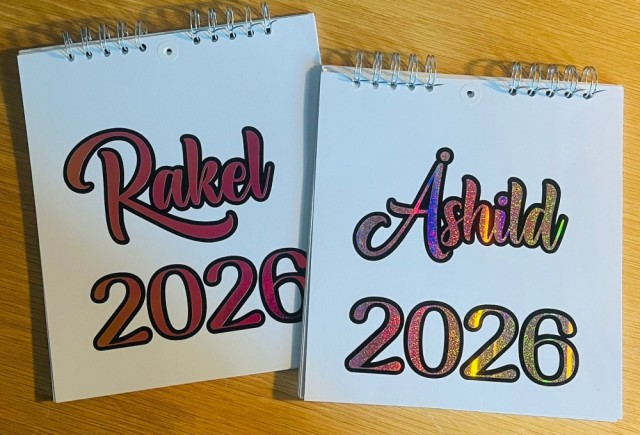 Rakel
2026
Åshild
2026